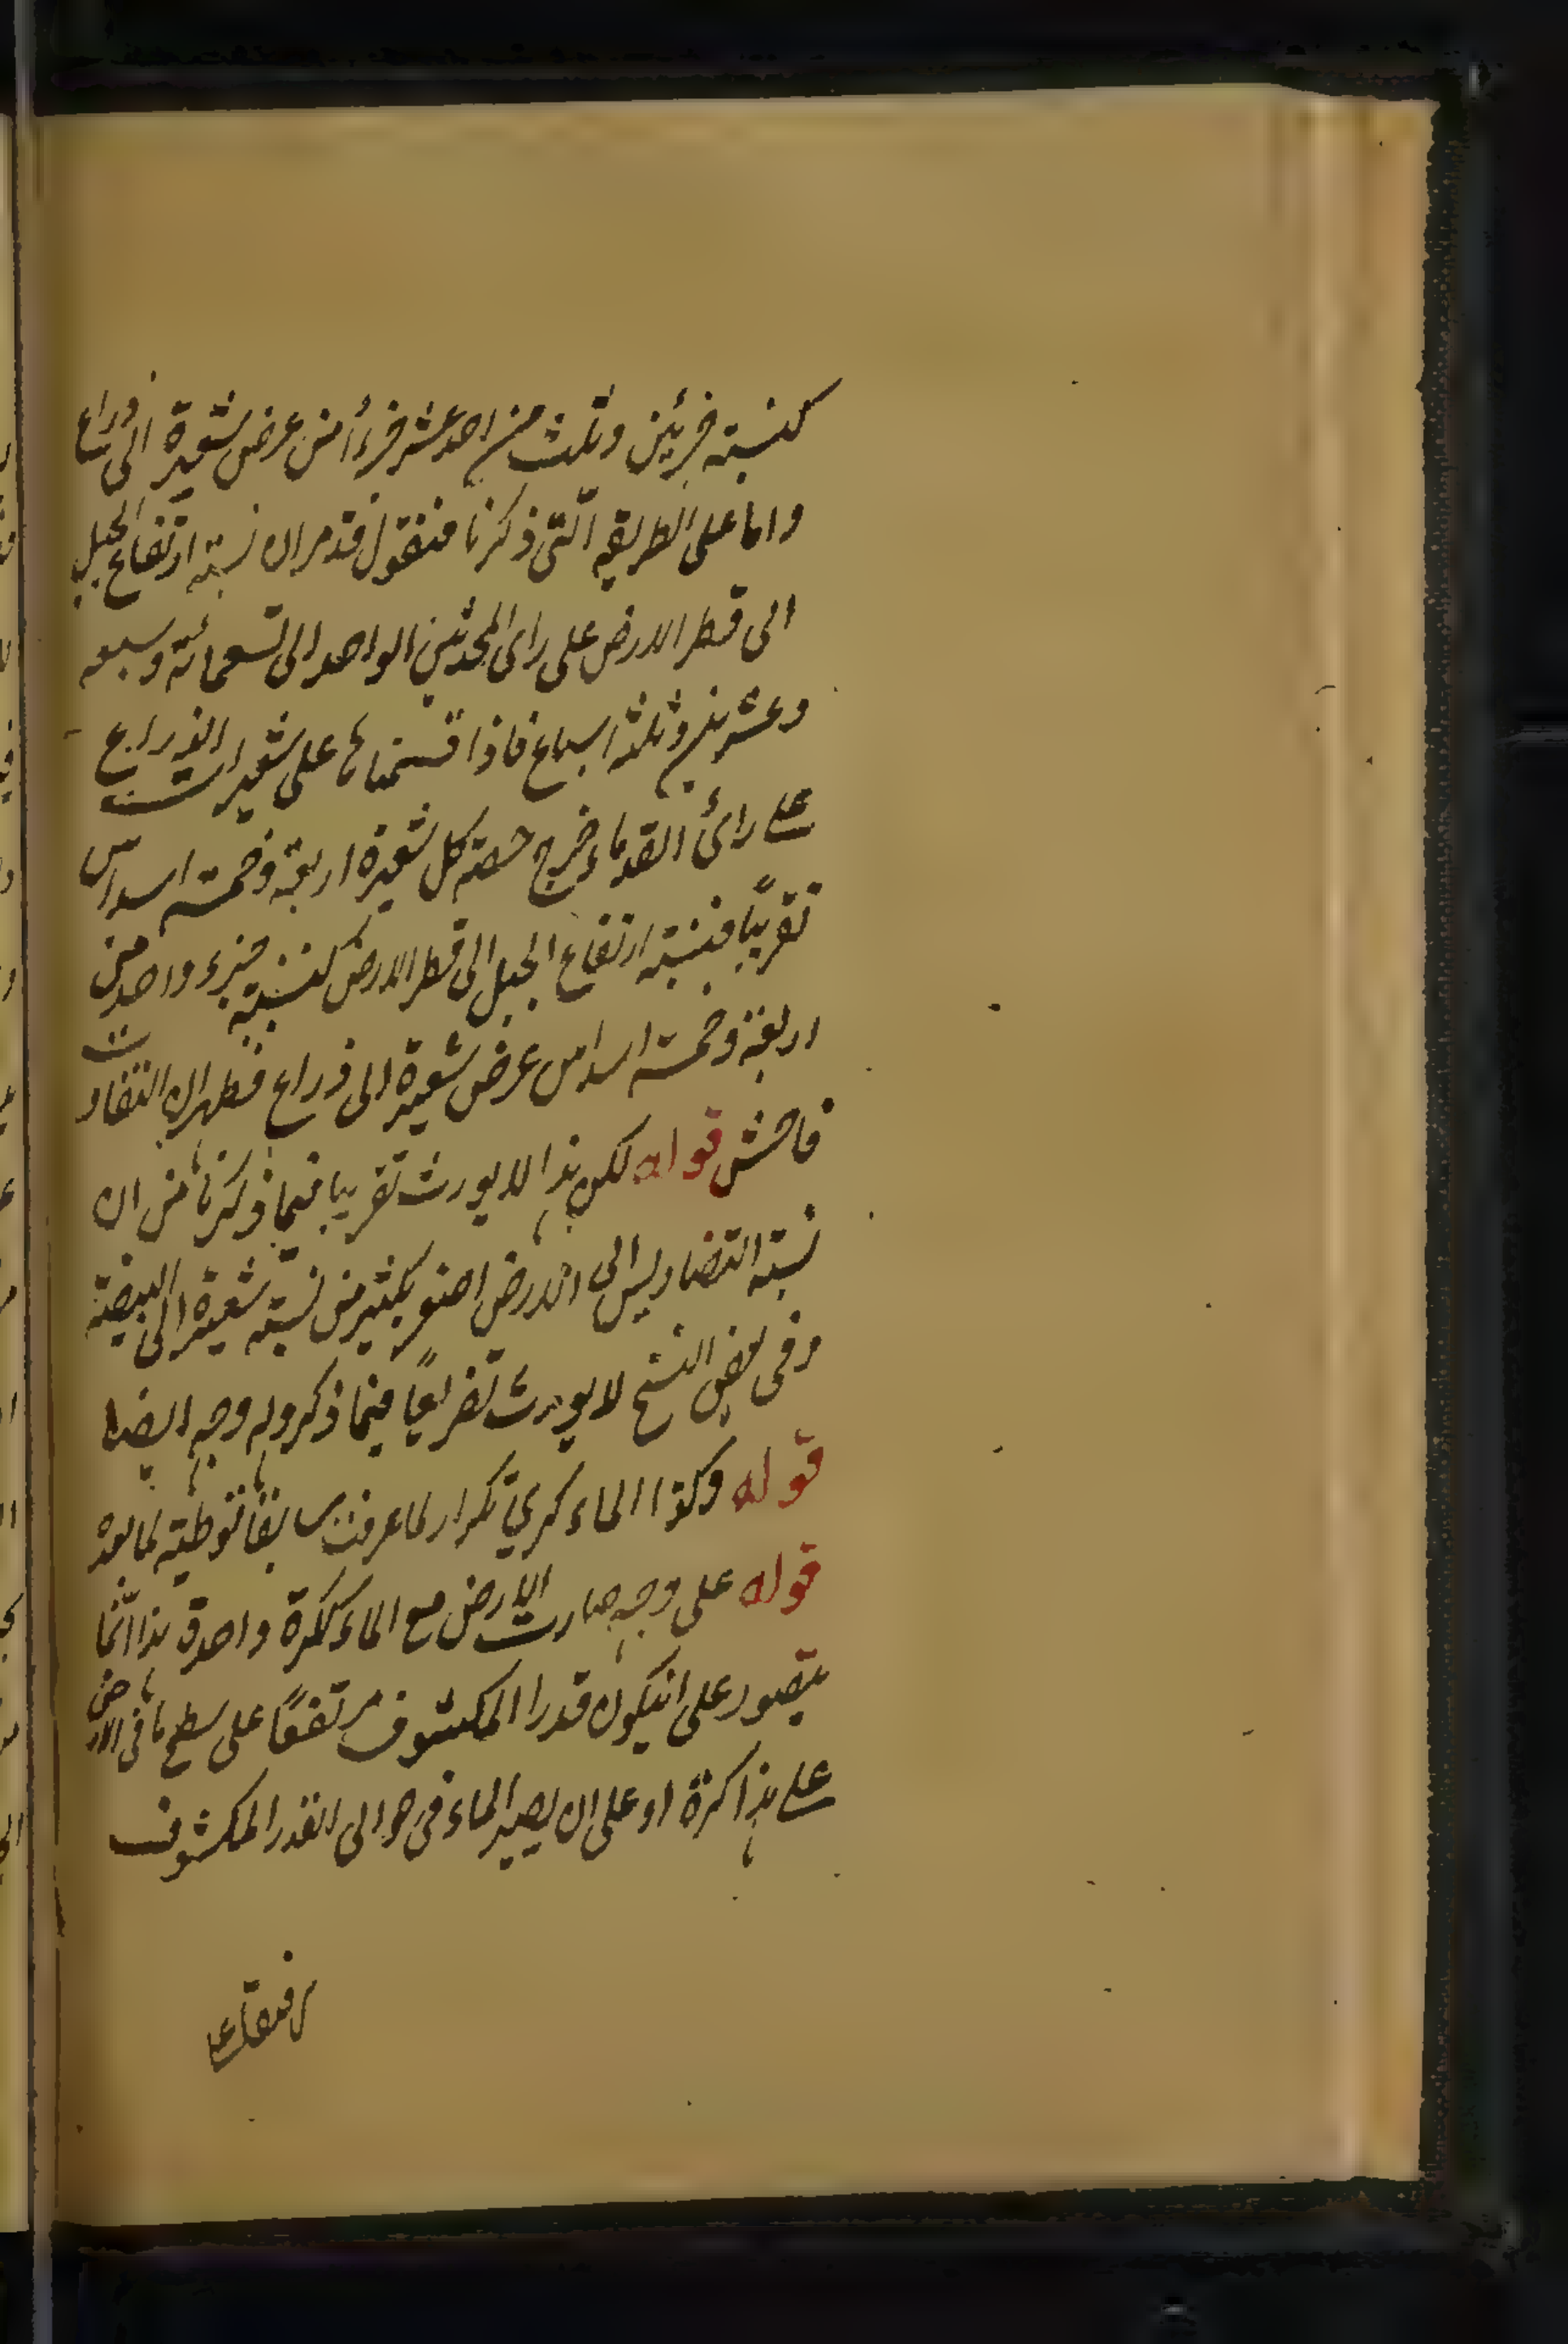 كنسبة جزئين وثلث من احد عشر جزءاً من عرض شعيرة الى ذراع
واما على الطريقه الّتى ذكرنا فنقول قد مر ان نسبة ارتفاع الجبل
الى قطر الارض على راى المحدثين الواحد الى تسعمائة وسبعه
وعشرين وثلثة اسباع فاذا قسمناها على شعيرات الذراع
على رائ القدماء خرج حصة كل شعيرة اربعة وخمسة اسداس
تقريباً فنسبة ارتفاع الجبل الى قطر الارض كنسبة جزء واحد من
اربعة وخمسة اسداس عرض شعيرة الى ذراع فظهر ان التفاوت
فاحش قوله لكن هذا لا يورث تقريبا فيما ذكرنا من ان
نسبة التضاريس الى الارض اصغر بكثير من نسبة شعيرة الى البيضة
وفى بعض النسخ لا يورث تفريعاً فيما ذكر وله وجه ايضا
قوله وكذا الماء كرىّ تكرار لما عرفت سابقا توطية لما بعده
قوله على وجه صارت الارض مع الماء ككرة واحدة هذا انّما
يتصور على انيكون قدر المكشوف مرتفعاً على سطح ما فى الارض
على هذا كرة او على ان يصير الماء فى حوالى القدر المكشوف